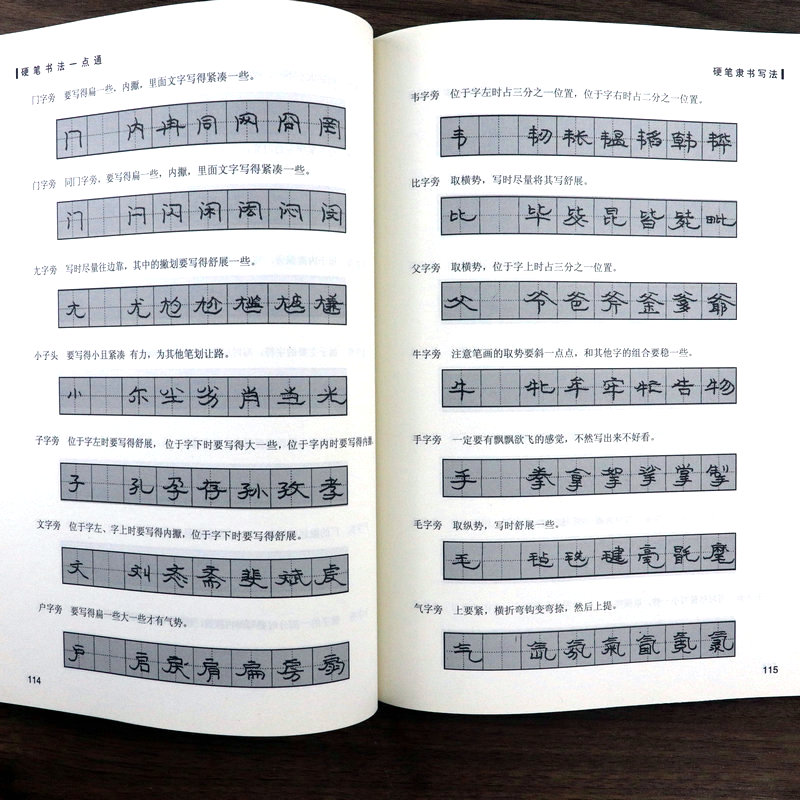 硬笔书法一点通
冂字旁 要写得扁一些、内擫，里面文字写得紧凑一些。
冂 内 冉 同 网 冏 罔
门字旁 同冂字旁，要写得扁一些，内擫，里面文字写得紧凑一些。
门 闩 闪 闲 闳 闷 闵
尢字旁 写时尽量往边靠，其中的撇划要写得舒展一些。
尢 尤
小子头 要写得小且紧凑 有力，为其他笔划让路。
小 尔 尘 肖 当 光
子字旁 位于字左时要写得舒展， 位于字下时要写得大一些，位于字内时要写得内擫
子 孔 孕 存 孙 孜 孝
文字旁 位于字左、字上时要写得内擫，位于字下时要写得舒展。
文 刘 斋 斐 斌 虔
户字旁 要写得扁一些大一些才有气势。
户 启 戾 肩 扁 房 扇
114
硬笔隶书写法
韦字旁 位于字左时占三分之一位置，位于字右时占二分之一位置。
韦 韧 韫 韬 韩 韡
比字旁 取横势，写时尽量将其写舒展。
比 毕 昆 皆 毙 毗
父字旁 取横势，位于字上时占三分之一位置。
父 爷 爸 斧 釜 爹 爺
牛字旁 注意笔画的取势要斜一点点，和其他字的组合要稳一些。
牛 牝 牟 牢 牤 告 物
手字旁 一定要有飘飘欲飞的感觉，不然写出来不好看。
手 拳 拿 挲 掌 掣
毛字旁 取纵势，写时舒展一些。
毛 毡 毪 毽 毫 毹 麾
气字旁 上要紧，横折弯钩变弯捺，然后上提。
气 氙 氛 氣 氤 氮 氯
115